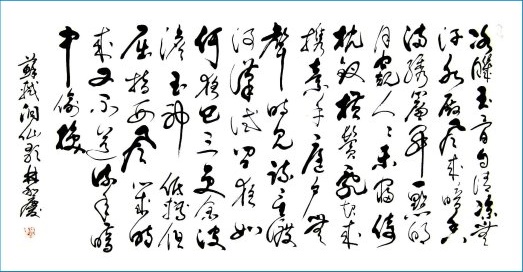 冰肌玉骨自清涼無
汗水殿風來暗香
滿繡簾開一點明
月窺人人未寢倚
枕釵橫鬢亂起來
攜素手庭戶無
聲時見疏星渡
河漢試問夜如
何夜已三更金波
淡玉繩低轉但
屈指西風幾時
來又不道流年暗
中偷換
蘇軾洞仙歌